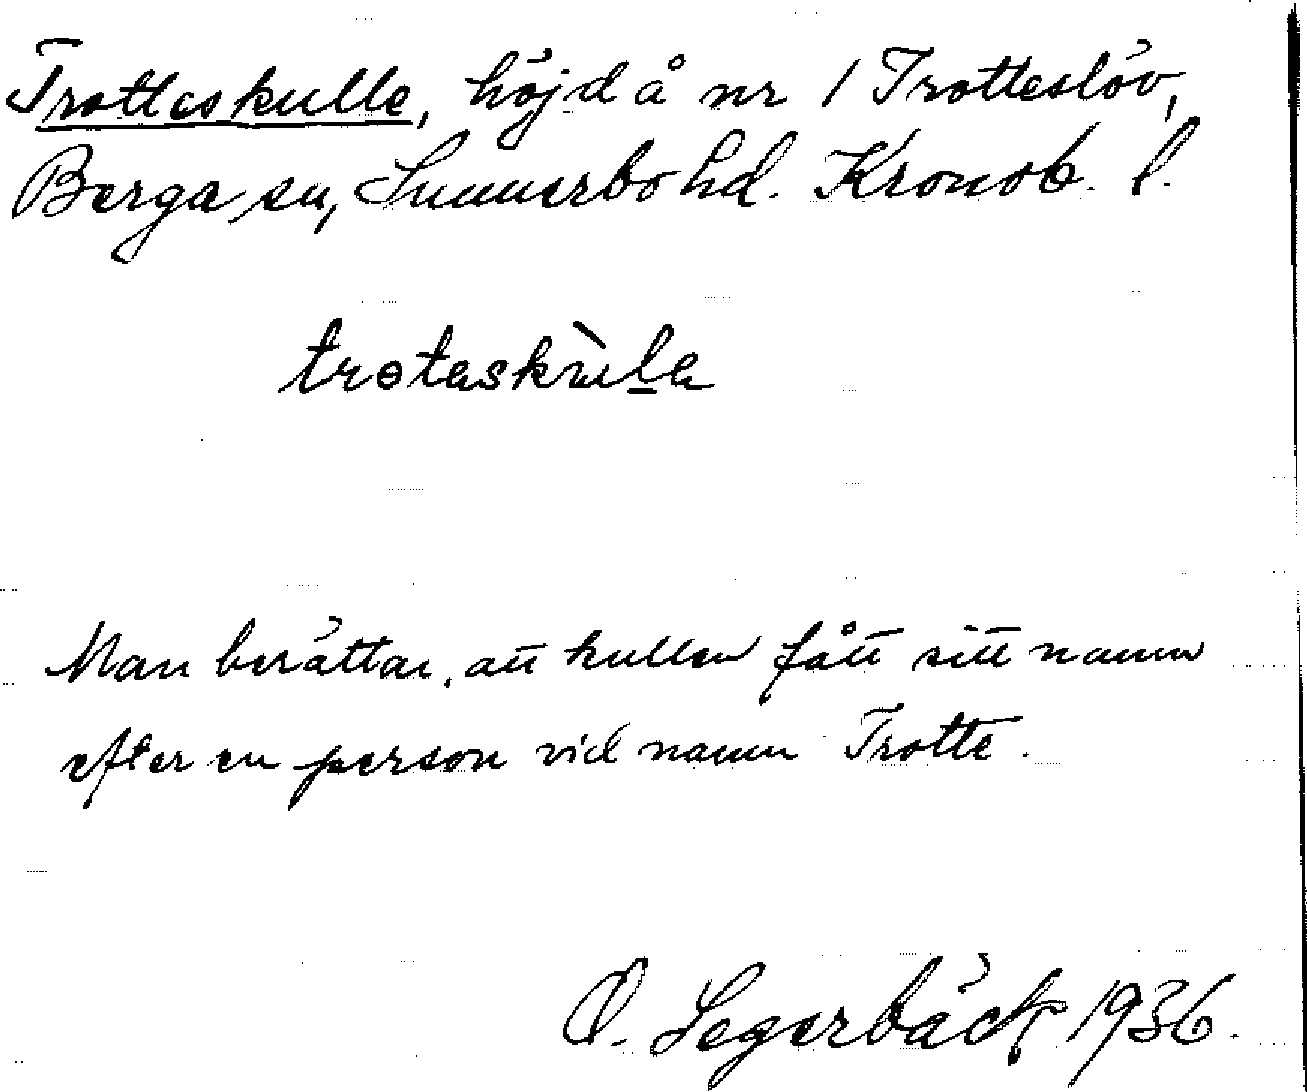 Trotteskulle, höjd å nr 1 Trotteslöv,
Berga sn, Sunnerbo hd. Kronob. l.
trɵtaskùla
Man berättar, att kullen fått sitt namn
efter en person vid namn Trotte.
O. Segerbäck 1936.